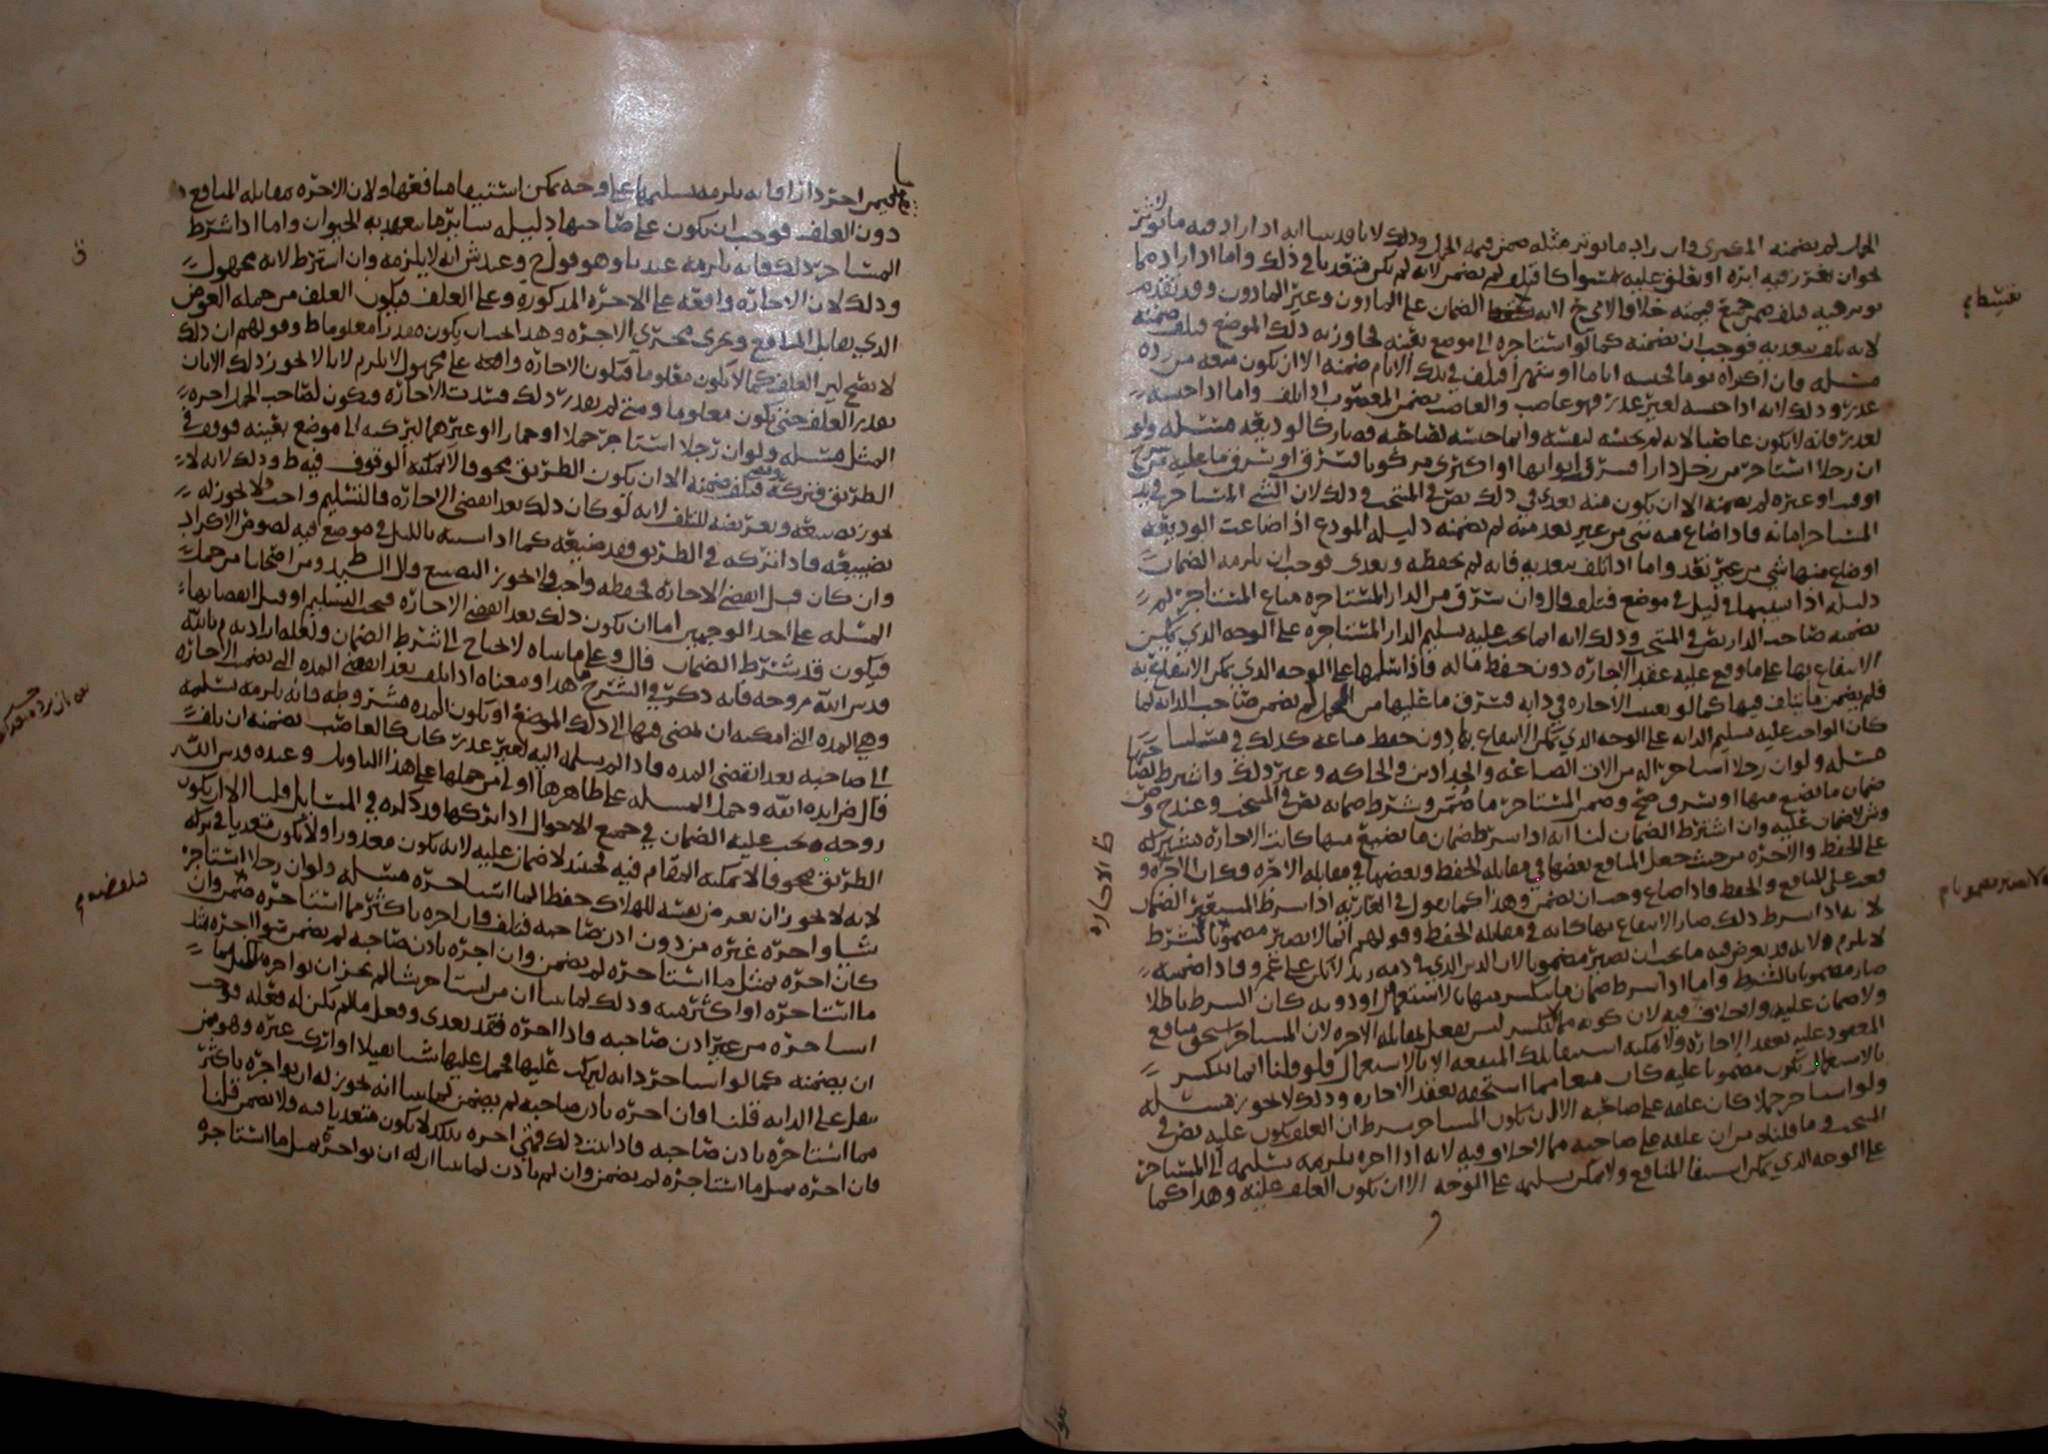 الجمل لم يضمنه المكترى وان زاد ما يوثر مثله ضمن قيمة الجمل وذلك لانا قد بينا انه اذا زاد فيه ما يوثر
نحو ان يغرز فيه ابره او يعلق عليه مسواكا فتلف لم يضمن لانه لم يكن متعديا في ذلك واما اذا زاد مما
يوثر فيه فتلف ضمن جميع قيمته خلافا لاحد لانه الضمان على الماذون وغير الماذون وقد تقدم
لانه تلف بتعديه فوجب ان يضمنه كما لو استاجره الى موضع بعينه فجاوز به ذلك الموضع فتلف ضمنه
مسئله فان اكراه يوما فحبسه اياما او شهرا فتلف في تلك الايام ضمنه الا ان يكون منعه من رده
عذر وذلك لانه اذا حبسه لغير عذر فهو غاصب والغاصب يضمن المغصوب اذا تلف واما اذا حبسه
لعذر فانه لا يكون غاصبا لانه لم يحبسه لنفسه وانما حبسه لصاحبه فصار كالوديعه مسئله ولو
ان رجلا استاجر من رجل دارا فسرق ابوابها او اكترى مركوبا فسرق او سرق ما عليه من سرج
او قتب او غيره لم يضمنه الا ان يكون منه تعدي في ذلك نص في المنتخب وذلك لان الشي المستاجر في يد
المستاجر امانه فاذا ضاع منه شي من غير تعد منه لم يضمنه دليله المودع اذا ضاعت الوديعه
او ضاع منها شي من غير تعد واما اذا تلف بتعديه فانه لم يحفظه وتعدى فوجب ان يلزمه الضمان
دليله اذا سيبها في ليل في موضع فتلف قال وان سرق من الدار المستاجره متاع المستاجر لم
يضمنه صاحب الدار نص في المنتخب وذلك لانه انما يجب عليه تسليم الدار المستاجره على الوجه الذي يمكن
الانتفاع بها على ما وقع عليه عقد الاجاره دون حفظ ماله فاذا سلمها على الوجه الذي يمكن الانتفاع به
فلم يضمن ما يتلف فيها كما لو وقعت الاجاره في دابه فسرق ما عليها من الحمل لم يضمن صاحب الدابه لما
كان الواجب عليه تسليم الدابه على الوجه الذي يمكن الانتفاع بها دون حفظ متاعه كذلك في مسئلتنا
مسئله ولو ان رجلا استاجر اله من الات الصاغه والحدادين والحاكه وغير ذلك واشترط لصاحبها
ضمان ما يضيع منها او يسرق صح وضمن المستاجر ما ضمن وشرط ضمانه نص في المنتخب وعند ح وص
وش لا ضمان عليه وان اشترط الضمان لنا انه اذا شرط ضمان ما يضيع منها كانت الاجاره مشتركه
على الحفظ والاجره من حيث جعل المنافع بعضها في مقابله الحفظ وبعضها في مقابله الاجره وكان الاجره و
قعت على المنافع والحفظ فاذا ضاع وجب ان يضمن وهذا كما نقول في العاريه اذا شرط المستعير الضمان
لانه اذا شرط ذلك صار الانتفاع بها كانه في مقابله الحفظ وقولهم انما لا يصير مضمونا بالشرط
لا يلزم ولانه قد يعرض فيه ما يجب ان يصير مضمونا لان الدين الذي في ذمه زيد لا يكن على عمرو فاذا ضمنه
صار مضمونا بالشرط واما اذا شرط ضمان ما ينكسر منها بالاستعمال او دونه كان الشرط باطلا
ولا ضمان عليه ولا خلاف فيه لان كونه مما ينكسر ليس يفعل بمقابله الاجره لان المستاجر يستحق منافع
المعقود عليه بعقد الاجاره ولا يمكنه استيفا تلك المنفعه الا بالاستعمال فلو قلنا انما ينكسر
بالاستعمال يكون مضمونا عليه كان منعا مما استحقه بعقد الاجاره وذلك لا يجوز مسئله
ولو استاجر جملا كان علفه على صاحبه الا ان يكون المستاجر شرط ان العلف يكون عليه نص في
المنتخب وما قلناه من ان علفه على صاحبه مما لا خلاف فيه لانه اذا اجره يلزمه تسليمه الى المستاجر
على الوجه الذي يمكن استيفا المنافع ولا يمكن تسليمه على الوجه الا ان يكون العلف عليه وهذا كما
نقول فيمن اجر دارا فانه يلزمه تسليمها على وجه يمكن استيفا منافعها ولان الاجره مقابله المنافع
دون العلف فوجب ان يكون على صاحبها دليله سائر ما يتعهد به الحيوان واما اذا اشترط
المستاجر ذلك فانه يلزمه عندنا وهو قول ح وعند ش انه لا يلزمه وان اشترط لانه مجهول
وذلك لان الاجاره واقعه على الاجره المذكوره وعلى العلف فيكون العلف من جمله العوض
الذي يقابل المنافع ويجري مجرى الاجره وهذا يجب ان يكون مقدرا معلوما ط وقولهم ان ذلك
لا يصح لان العلف كما لا يكون معلوما فتكون الاجاره واقعه على مجهول لا يلزم لانا لا نجوز ذلك الا بان
يقدر العلف حتى يكون معلوما ومتى لم يقدر ذلك فسدت الاجاره ويكون لصاحب الجمل اجره
المثل مسئله ولو ان رجلا استاجر جملا او حمارا او غيرهما ليركبه الى موضع بعينه فوقف في
الطريق فتركه فتلف ضمنه الا ان يكون الطريق مخوفا لا يمكنه الوقوف فيه ط وذلك لانه لا
يجوز تضييعه وتعريضه للتلف لانه لو كان ذلك بعد انقضى الاجاره فالتسليم واجب ولا يجوز له
تضييعه فاذا تركه في الطريق فقد ضيعه كما اذا سيبه بالليل في موضع فيه لصوص الاكراد
وان كان قبل انقضى الاجاره فحفظه واجب ولا يجوز التضييع قال السيد ومن اصحابنا من حمل
المسئله على احد الوجهين اما ان يكون ذلك بعد انقضى الاجاره فيجب التسليم او قبل انقضائها
فيكون قد شرط الضمان قال وعلى ما بيناه لا يحتاج الى شرط الضمان ولعله اراد به م بالله
قدس الله روحه فانه ذكر في الشرح هذا ومعناه اذا تلف بعد انقضى المده التي تضمنت الاجاره
وهي المده التي امكنه ان يمضي فيها الى ذلك الموضع او يكون المده مشروطه فانه يلزمه تسليمه
الى صاحبه بعد انقضى المده فاذا لم يسلمه اليه لغير عذر كان كالغاصب يضمنه ان تلف
قال ض ايده الله وحمل المسئله على ظاهرها اولى من حملها على هذا التاويل وعنده قدس الله
روحه يجب عليه الضمان في جميع الاحوال اذا تركها وذكره في المسايل قلنا الا ان يكون
الطريق مخوفا لا يمكنه المقام فيه فحينئذ لا ضمان عليه لانه يكون معذورا ولا يكون متعديا في تركه
لانه لا يجوز ان يعرض نفسه للهلاك حفظا لما استاجره مسئله ولو ان رجلا استاجر
شيا واجره غيره من دون اذن صاحبه فتلف فان اجره باكثر مما استاجره ضمن وان
كان اجره بمثل ما استاجره لم يضمن وان اجره باذن صاحبه لم يضمن سوا اجره بمثل
ما استاجره او اكثر منه وذلك لما بينا ان من استاجر شيا لم يجز ان يواجره باكثر مما
استاجره من غير اذن صاحبه فاذا اجره فقد تعدى وفعل ما لم يكن له فعله فوجب
ان يضمنه كما لو استاجر دابه ليركب عليها فحمل عليها شيا ثقيلا او اركب غيره وهو ممن
يثقل على الدابه قلنا فان اجره باذن صاحبه لم يضمن لما بينا انه يجوز له ان يواجره باكثر
مما استاجره باذن صاحبه فاذا ثبت ذلك فمتى اجره بذلك لا يكون متعديا فيه ولا يضمن قلنا
فان اجره بمثل ما استاجره لم يضمن وان لم ياذن لما بينا ان له ان يواجره بمثل ما استاجره